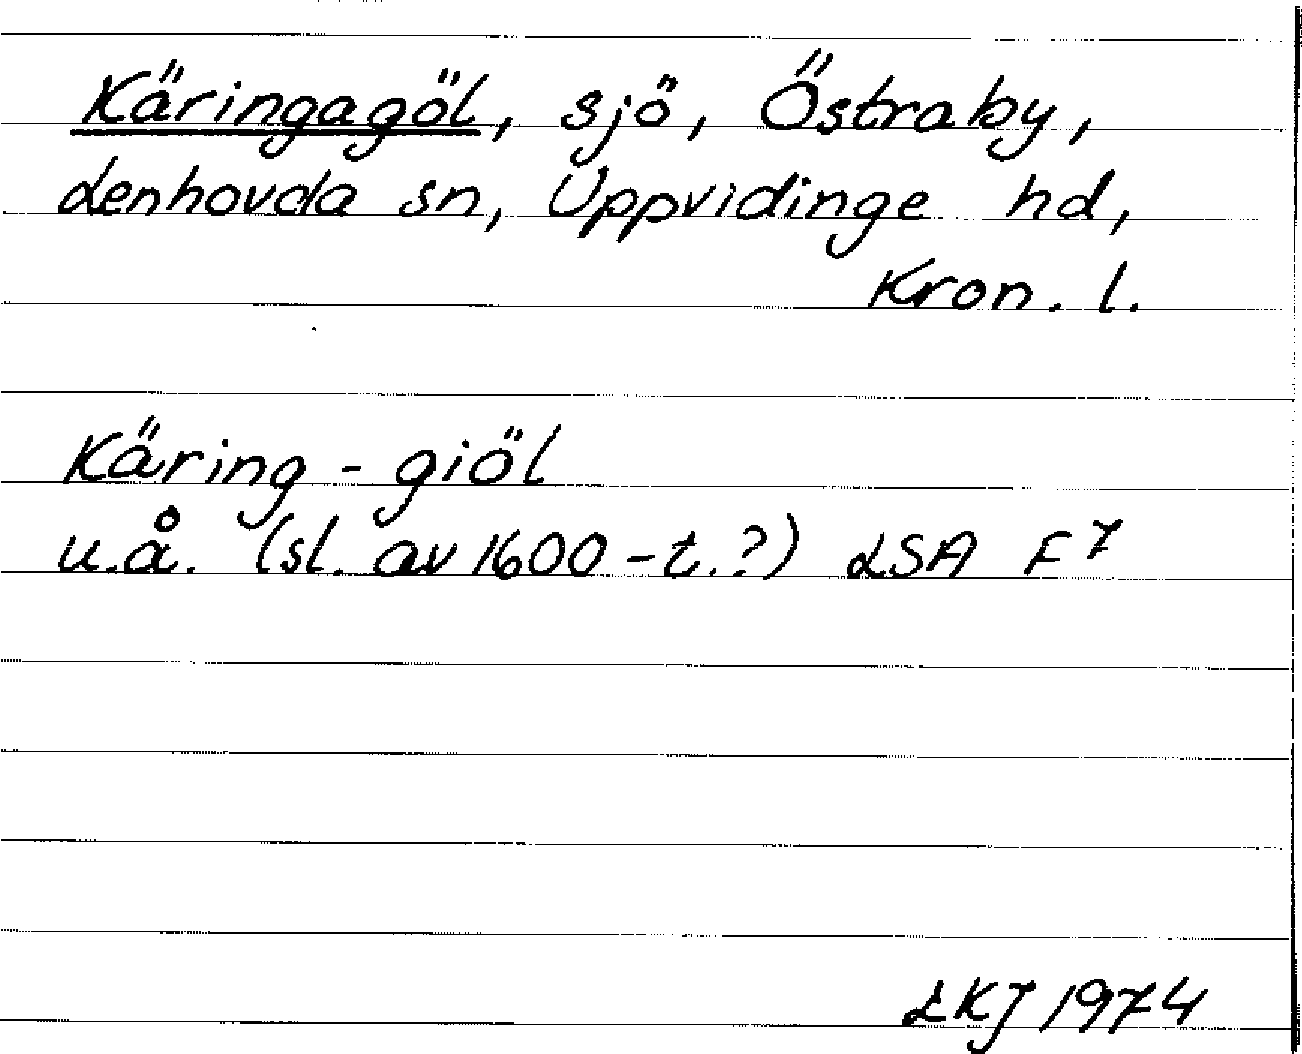 Käringagöl, sjö, Östraby,
Lenhovda sn, Uppvidinge hd,
Kron. l.
Käring - giöl
u.å. (sl. av 1600-t.?) LSA F7
LKJ 1974